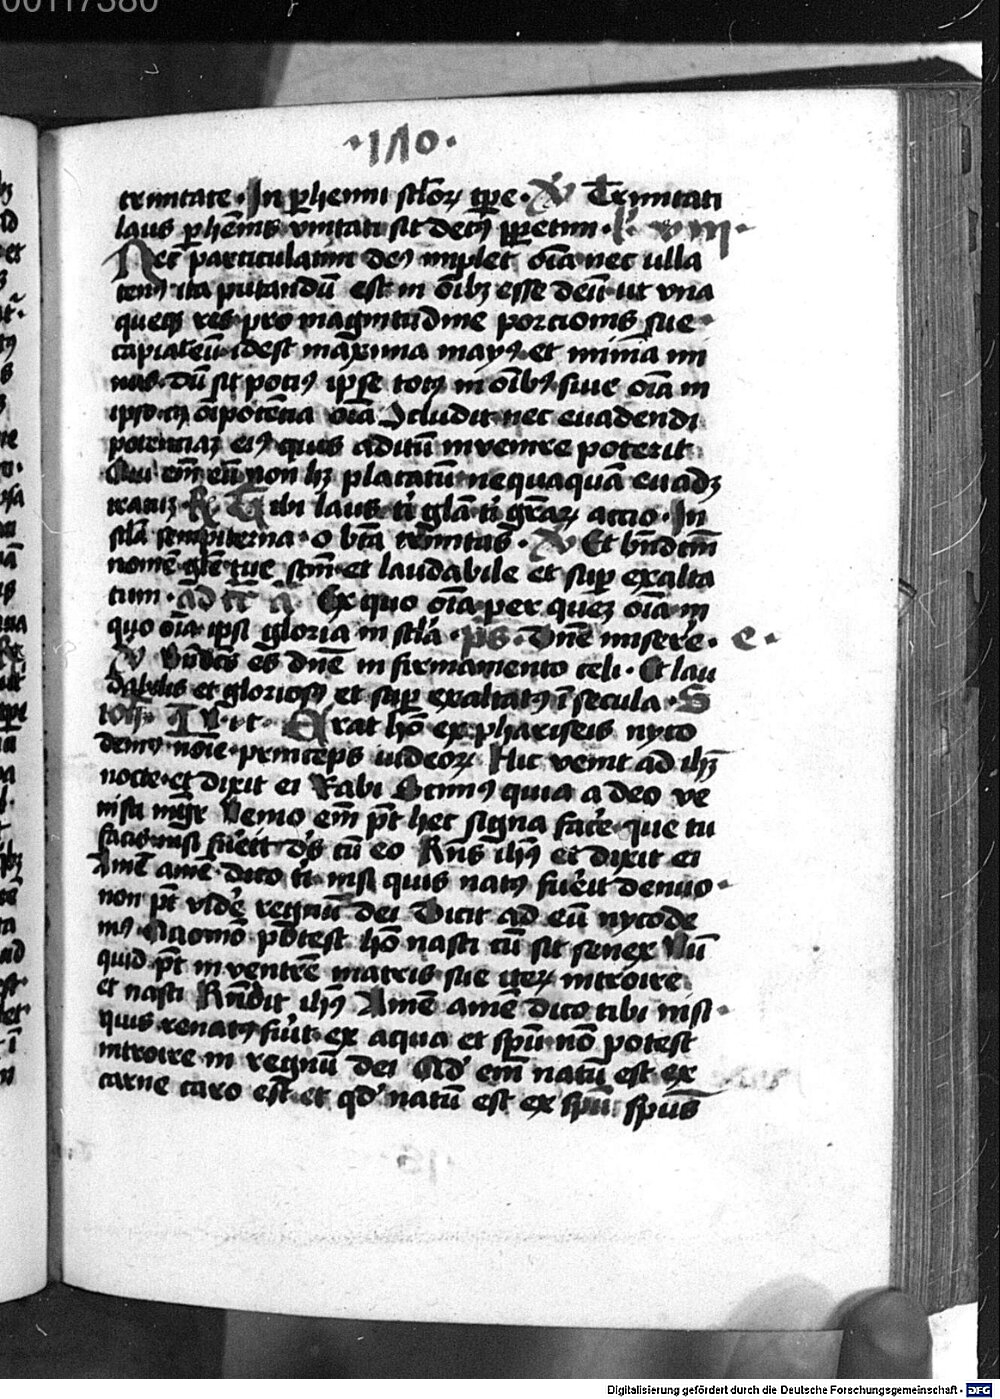 00117380
·110·
trinitate · In ꝑhenni sclōꝝ tp̄e · V Trinitati
laus ꝑhēnis vnitati sit decꝯ ꝑpetim · l' viii ·
Nec particulatim deꝯ implet oīa nec ulla
tenꝯ ita putandū est in oībꝫ esse deū ut vna
queqꝫ res pro magnitudine porcionis sue
capiat eū idest māxima mayꝯ et minīa mi
nus · dū sit pociꝯ ipse totꝯ in oībꝯ siue oīa in
ipso cꝯ oīpotēcia oīa īcludit nec euadendi
potenciaꝫ eiꝯ quis aditū inuenire poterit
Qui em̄ eū non hꝫ placatū nequaquā euadꝫ
iratuꝫ R Tibi laus ti' glā ti' grāꝝ accio · In
sclā sempiterna · o bt̄a trinitas · V Et bn̄dctm̄
nomē glē tue sctm̄ et laudabile et suꝑ exalta
tum · ad cā a' Ex quo oīa per queꝫ oīa in
quo oīa ipsi gloria in sclā · ps · Dn̄e misere · e ·
V Bn̄dcs es dn̄e in firmamento celi · Et lau
dabilis et gloriosꝯ et suꝑ exaltatꝯ ī secula · S
Erat hō ex phariseis nyco
demꝯ noīe princeps iudeoꝝ Hic venit ad ihm̄
nocte et dixit ei Rabi Scimꝯ quia a deo ve
nisti mgr̄ Nemo em̄ pt̄ hec signa face' que tu
facis nisi fuerit ds̄ cū eo Rn̄s ihꝯ et dixit ei
Amē amē dico ti' nisi quis natꝯ fuerit denuo ·
non pt̄ vide' regnū dei Dicit ad eū nycode
mꝯ Quomō potest hō nasci cū sit senex Nū
quid pt̄ in ventrē matris sue iteꝝ introire
et nasci Rn̄dit ihꝯ Amē amē dico tibi nisi ·
quis renatꝯ fuit ex aqua et sp̄u nō potest
introire in regnū dei Qd' em̄ natū est ex
carne caro est et qd' natū est ex sp̄u sp̄us
Digitalisierung gefördert durch die Deutsche Forschungsgemeinschaft - DFG